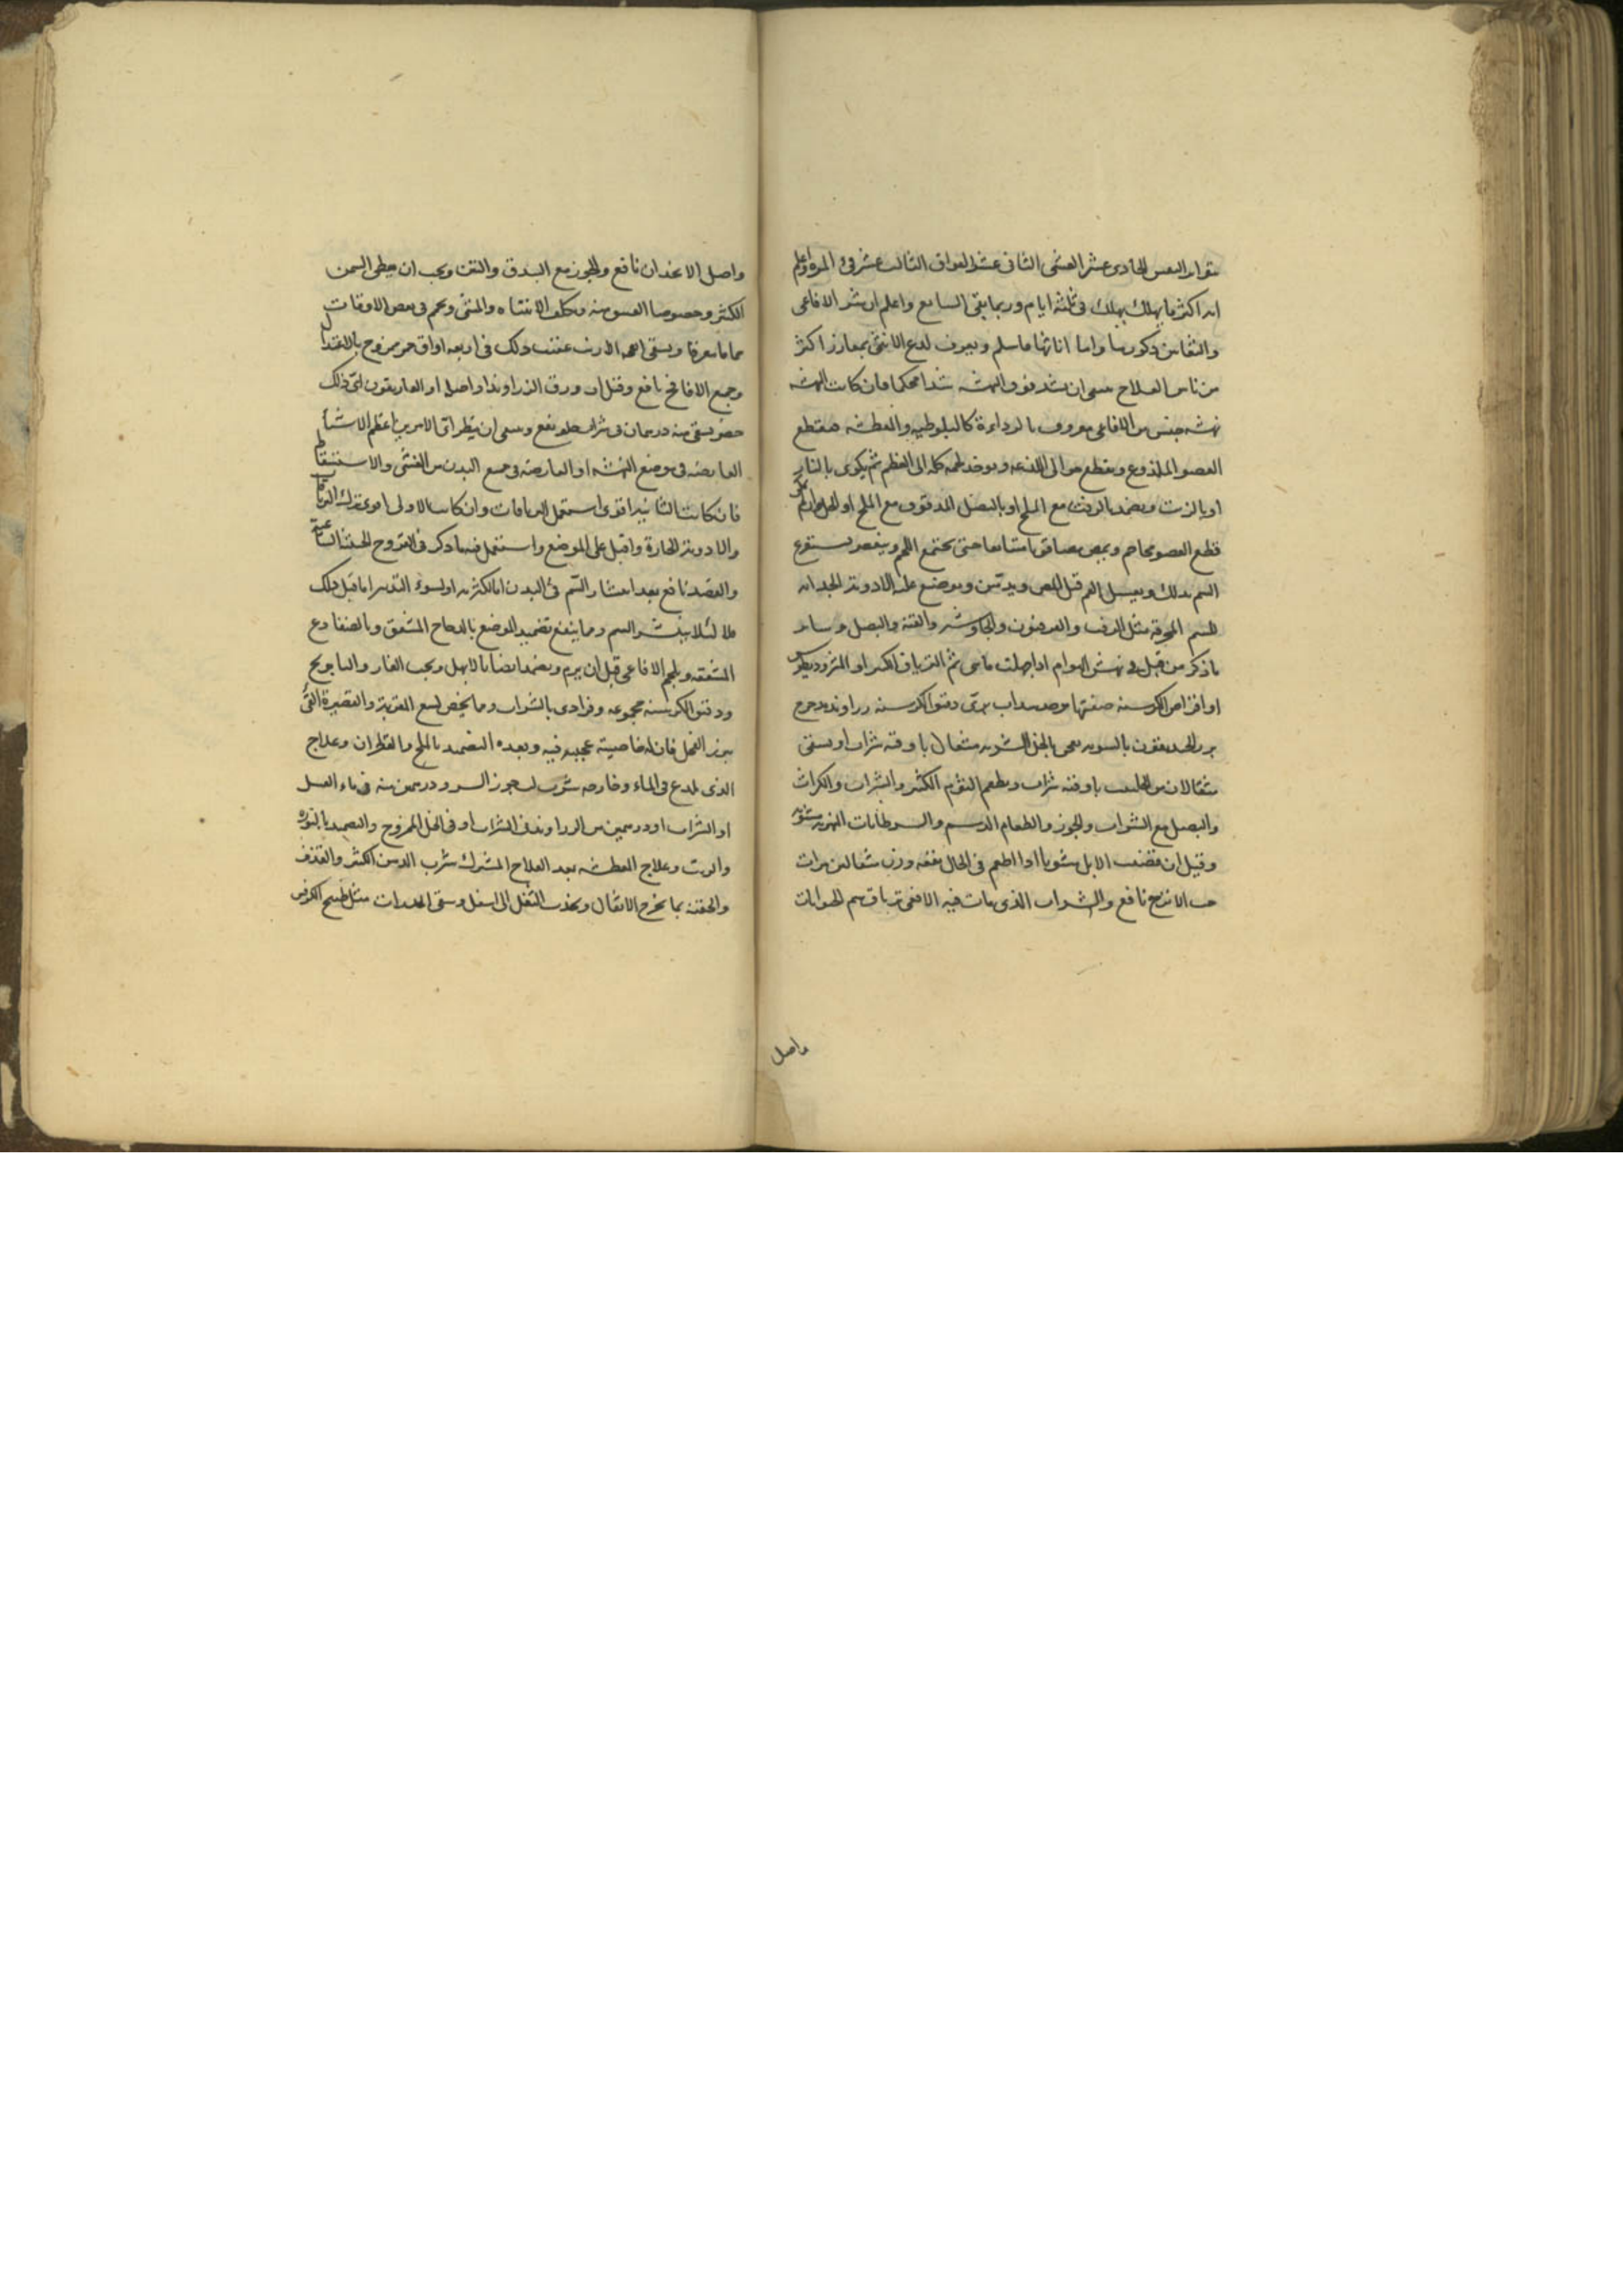 تواتر النفس الحادى عشر الغشى الثانى عشر الفواق الثالث عشر قئ المرة واعلم
انه اكثر ما يهلك يهلك فى ثلثة ايام وربما بقى الى السابع واعلم ان شر الافاعى
ذكورها واما اناثها فاسلم ويعرف لدغ الانثى بمغارز اكثر
من ناس العلاج ان شد فوق النهشة شدا محكما فان كانت النهشة
نهشة جنس من الافاعى معروف بالرداءة كالبلوطية والعطشة فيقطع
العضو الملذوع ويقطع حوالى اللذعة ويوخذ لحمه كله الى العظم ثم يكوى بالنار
او بالزيت ويضمد مع الملح او بالبصل المدقوق مع الملح
قطع العضو محاجم ويمص متتابعا حتى يجتمع الدم
السم بذلك ويغسل الفم قبل المص ويدهن ويوضع عليه الادوية الجذابة
للسم المحرقة مثل الزفت والفربيون والجاوشير والقنة والبصل وسائر
ما ذكر من قبل فى نهش الهوام ثم الترياق الكبير او المثروديطوس
او اقراص الكرسنة صفتها سداب برى دقيق الكرسنة زراوند مدحرج
بزر الحندقوق بالسوية يعجن بالخل الشربة مثقال باوقية شراب او يسقى
مثقالان من باوقية شراب ويطعم الثوم الكثير والشراب والكراث
والبصل مع الشراب والجوز والطعام الدسم والسرطانات النهرية مشوية
وقيل ان قضيب الابل مشويا اذا اطعم فى الحال نفعه وزن مثقالين مرات
حب الاترج نافع والشراب الذى مات فيه الافعى ترياق سم الحيوانات
واصل
واصل الانجدان نافع والجوز مع البندق والتين ويجب ان يعطى السمن
الكثير وخصوصا العتيق منه ويكلف الانتباه والمشى ويحم فى بعض الاوقات
حماما معرقا ويسقى انفحة الارنب عقيب ذلك فى اربعة اواق خمر ممزوج بالاعتدال
وجميع الانافح نافع وقيل ان ورق الزراوند او اصله او الغاريقون اى ذلك
حضر يسقى منه درهمان فى شراب حلو نفع وينبغى ان ينظر اى الامرين اعظم الاشياء
العارضة فى موضع النهشة او العارضة فى جميع البدن من الغشى والاستسقاط
فان كانت الثانية اقوى استعمل الترياقات وان كانت الاولى اقوى فترك الترياقات
والادوية الحارة واقبل على الموضع واستعمل فيه ما ذكر فى القروح الخبيثة الساعية
والفصد نافع بعد انتشار السم فى البدن اما لكثرته او لسوء التدبير اما قبل ذلك
فلا لئلا ينتشر السم ومما ينفع تضميد الموضع بالدجاج المشقق وبالضفادع
المشققة وبلحم الافاعى قبل ان يرم ويضمد ايضا بالابهل وبحب الغار والبابونج
ودقيق الكرسنة مجموعة وفرادى بالشراب ومما يخص لسع المقرنة والقصيرة القئ
ببزر الفجل فان له خاصية عجيبة فيه وبعده التضميد بالملح والقطران وعلاج
الذى لدغ فى الماء وخارجه شرب لب جوز السرو درهمين منه فى ماء العسل
او الشراب او درهمين من الزراوند فى الشراب او فى الخل الممزوج والتضميد بالنورة
والزيت وعلاج العطشة بعد العلاج المشترك شرب الدهن الكثير والقذف
والحقنة بما يخرج الاثقال ويجذب الثقل الى اسفل وسقى المدرات مثل طبيخ الكرفس